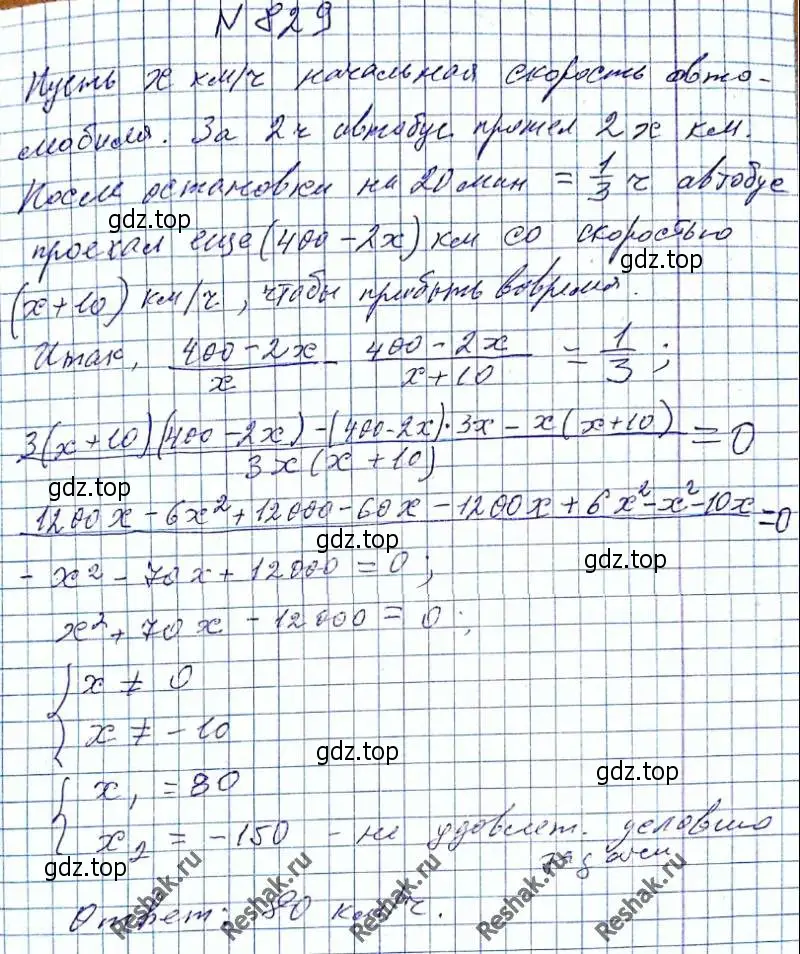 N 829
Пусть x км/ч начальная скорость авто-
мобиля. За 2 ч автобус прошел 2x км.
После остановки на 20 мин = 1/3 ч автобус
gdz.top
проехал еще (400 - 2x) км со скоростью
gdz.top
(x+10) км/ч, чтобы прибыть вовремя.
Итак, (400 - 2x)/x - (400 - 2x)/(x+10) = 1/3;
(3(x+10)(400 - 2x) - (400 - 2x)·3x - x(x+10))/(3x(x+10)) = 0
gdz.top
1200x - 6x² + 12000 - 60x - 1200x + 6x² - x² - 10x = 0
gdz.top
gdz.top
- x² - 70x + 12000 = 0;
x² + 70x - 12000 = 0;
{ x ≠ 0
x ≠ -10
gdz.top
gdz.top
{ x₁ = 80
x₂ = -150 - не удовлет. условию
задачи
gdz.top
Ответ: 80 км/ч.
Reshak.ru Reshak.ru Reshak.ru Reshak.ru Reshak.ru